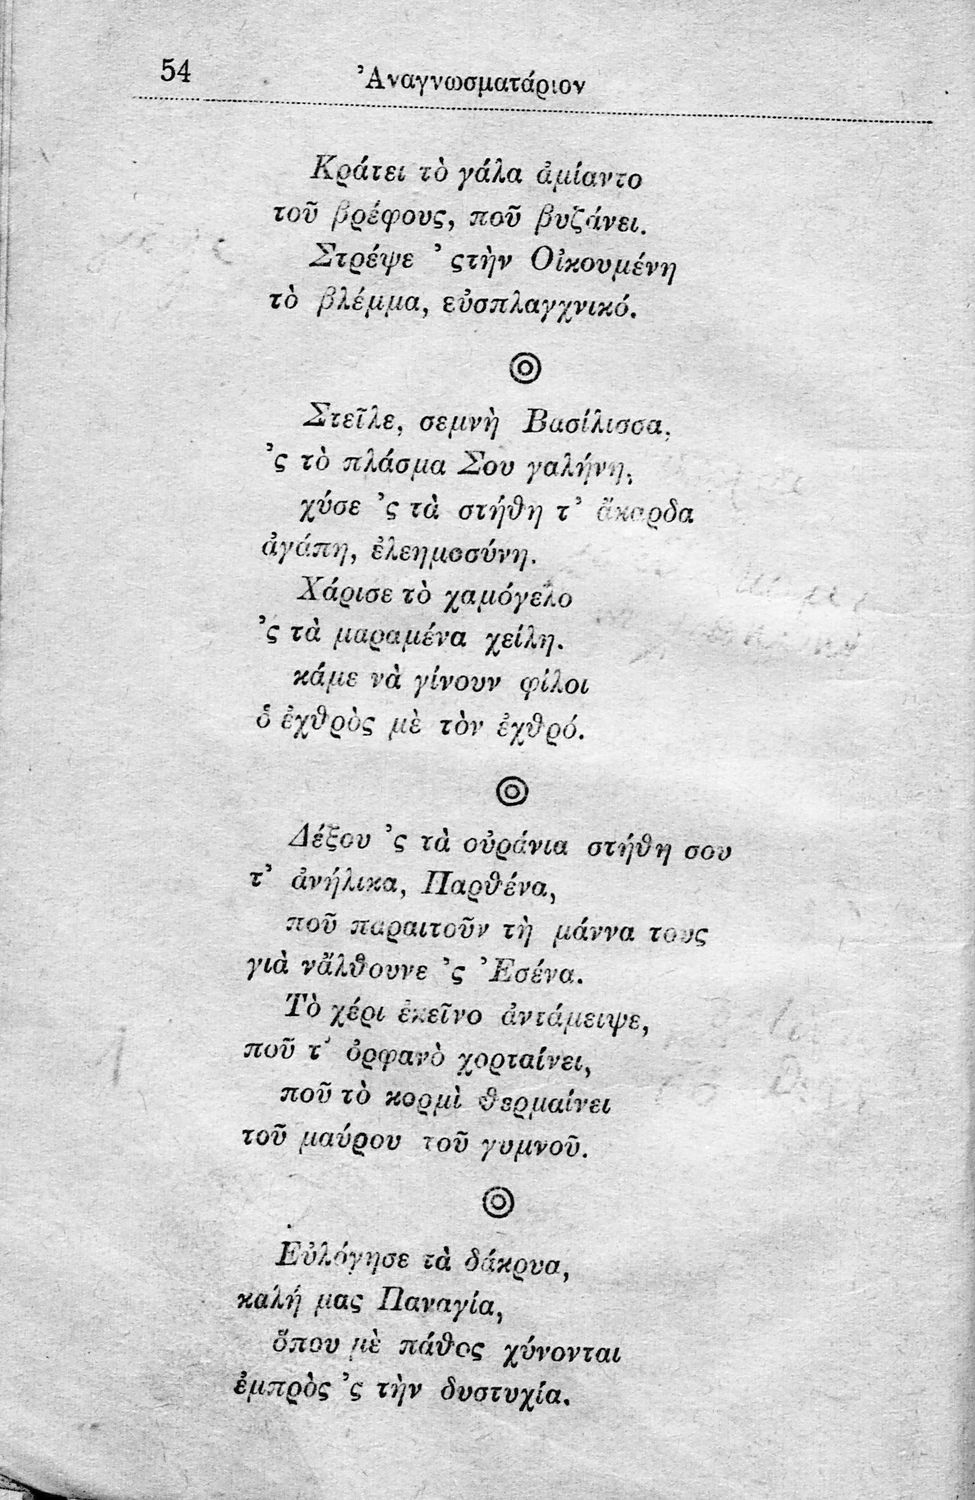 54
Ἀναγνωσματάριον
Κράτει τὸ γάλα ἀμίαντο
τοῦ βρέφους, ποῦ βυζάνει.
Στρέψε ᾽ ςτὴν Οἰκουμένη
τὸ βλέμμα, εὐσπλαγχνικό.
Στεῖλε, σεμνὴ Βασίλισσα,
᾽ς τὸ πλάσμα Σου γαλήνη,
χύσε ᾽ς τὰ στήθη τ᾽ ἄκαρδα
ἀγάπη, ἐλεημοσύνη.
Χάρισε τὸ χαμόγελο
᾽ς τὰ μαραμένα χείλη.
κάμε νὰ γίνουν φίλοι
ὁ ἐχθρὸς μὲ τὸν ἐχθρό.
Δέξου ᾽ς τὰ οὐράνια στήθη σου
τ᾽ ἀνήλικα, Παρθένα,
ποῦ παραιτοῦν τὴ μάννα τους
γιὰ νἄλθουνε ᾽ς Ἐσένα.
Τὸ χέρι ἐκεῖνο ἀντάμειψε,
ποῦ τ᾽ ὀρφανὸ χορταίνει,
ποῦ τὸ κορμὶ θερμαίνει
τοῦ μαύρου τοῦ γυμνοῦ.
Εὐλόγησε τὰ δάκρυα,
καλή μας Παναγία,
ὅπου μὲ πάθος χύνονται
ἐμπρὸς ᾽ς τὴν δυστυχία.